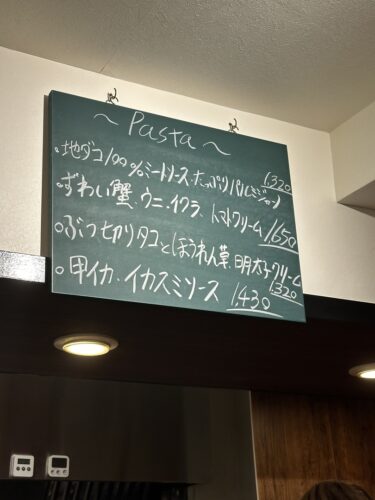 ～Pasta～
。地ダコ100%ミートソース、たっぷりパルミジャン 1,320
。ずわい蟹、ウニ、イクラ、トマトクリーム 1,650
。ぶつ切りタコとほうれん草、明太子クリーム 1,320
。甲イカ、イカスミソース 1,430